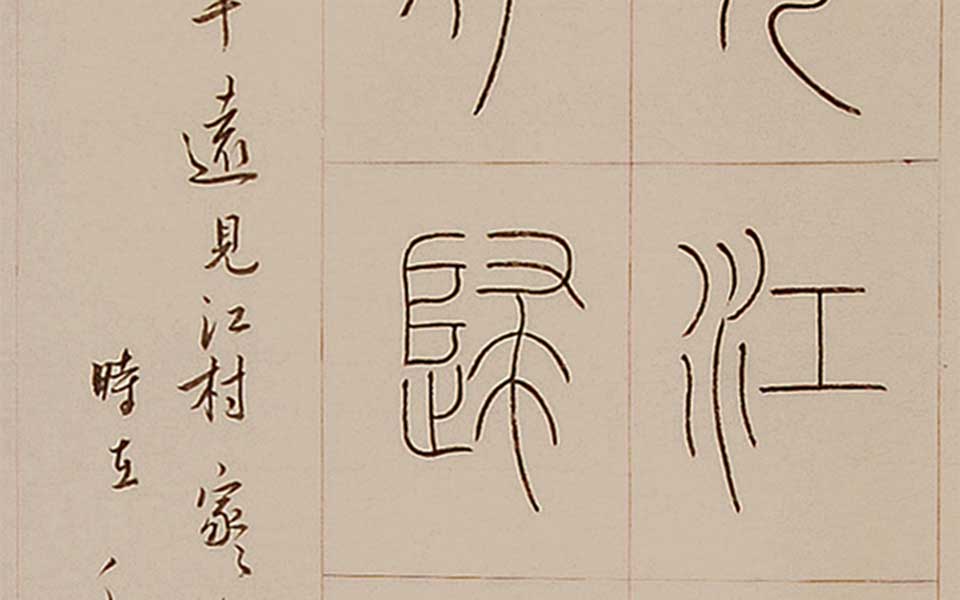 江
歸
遠見江村家〻
時在